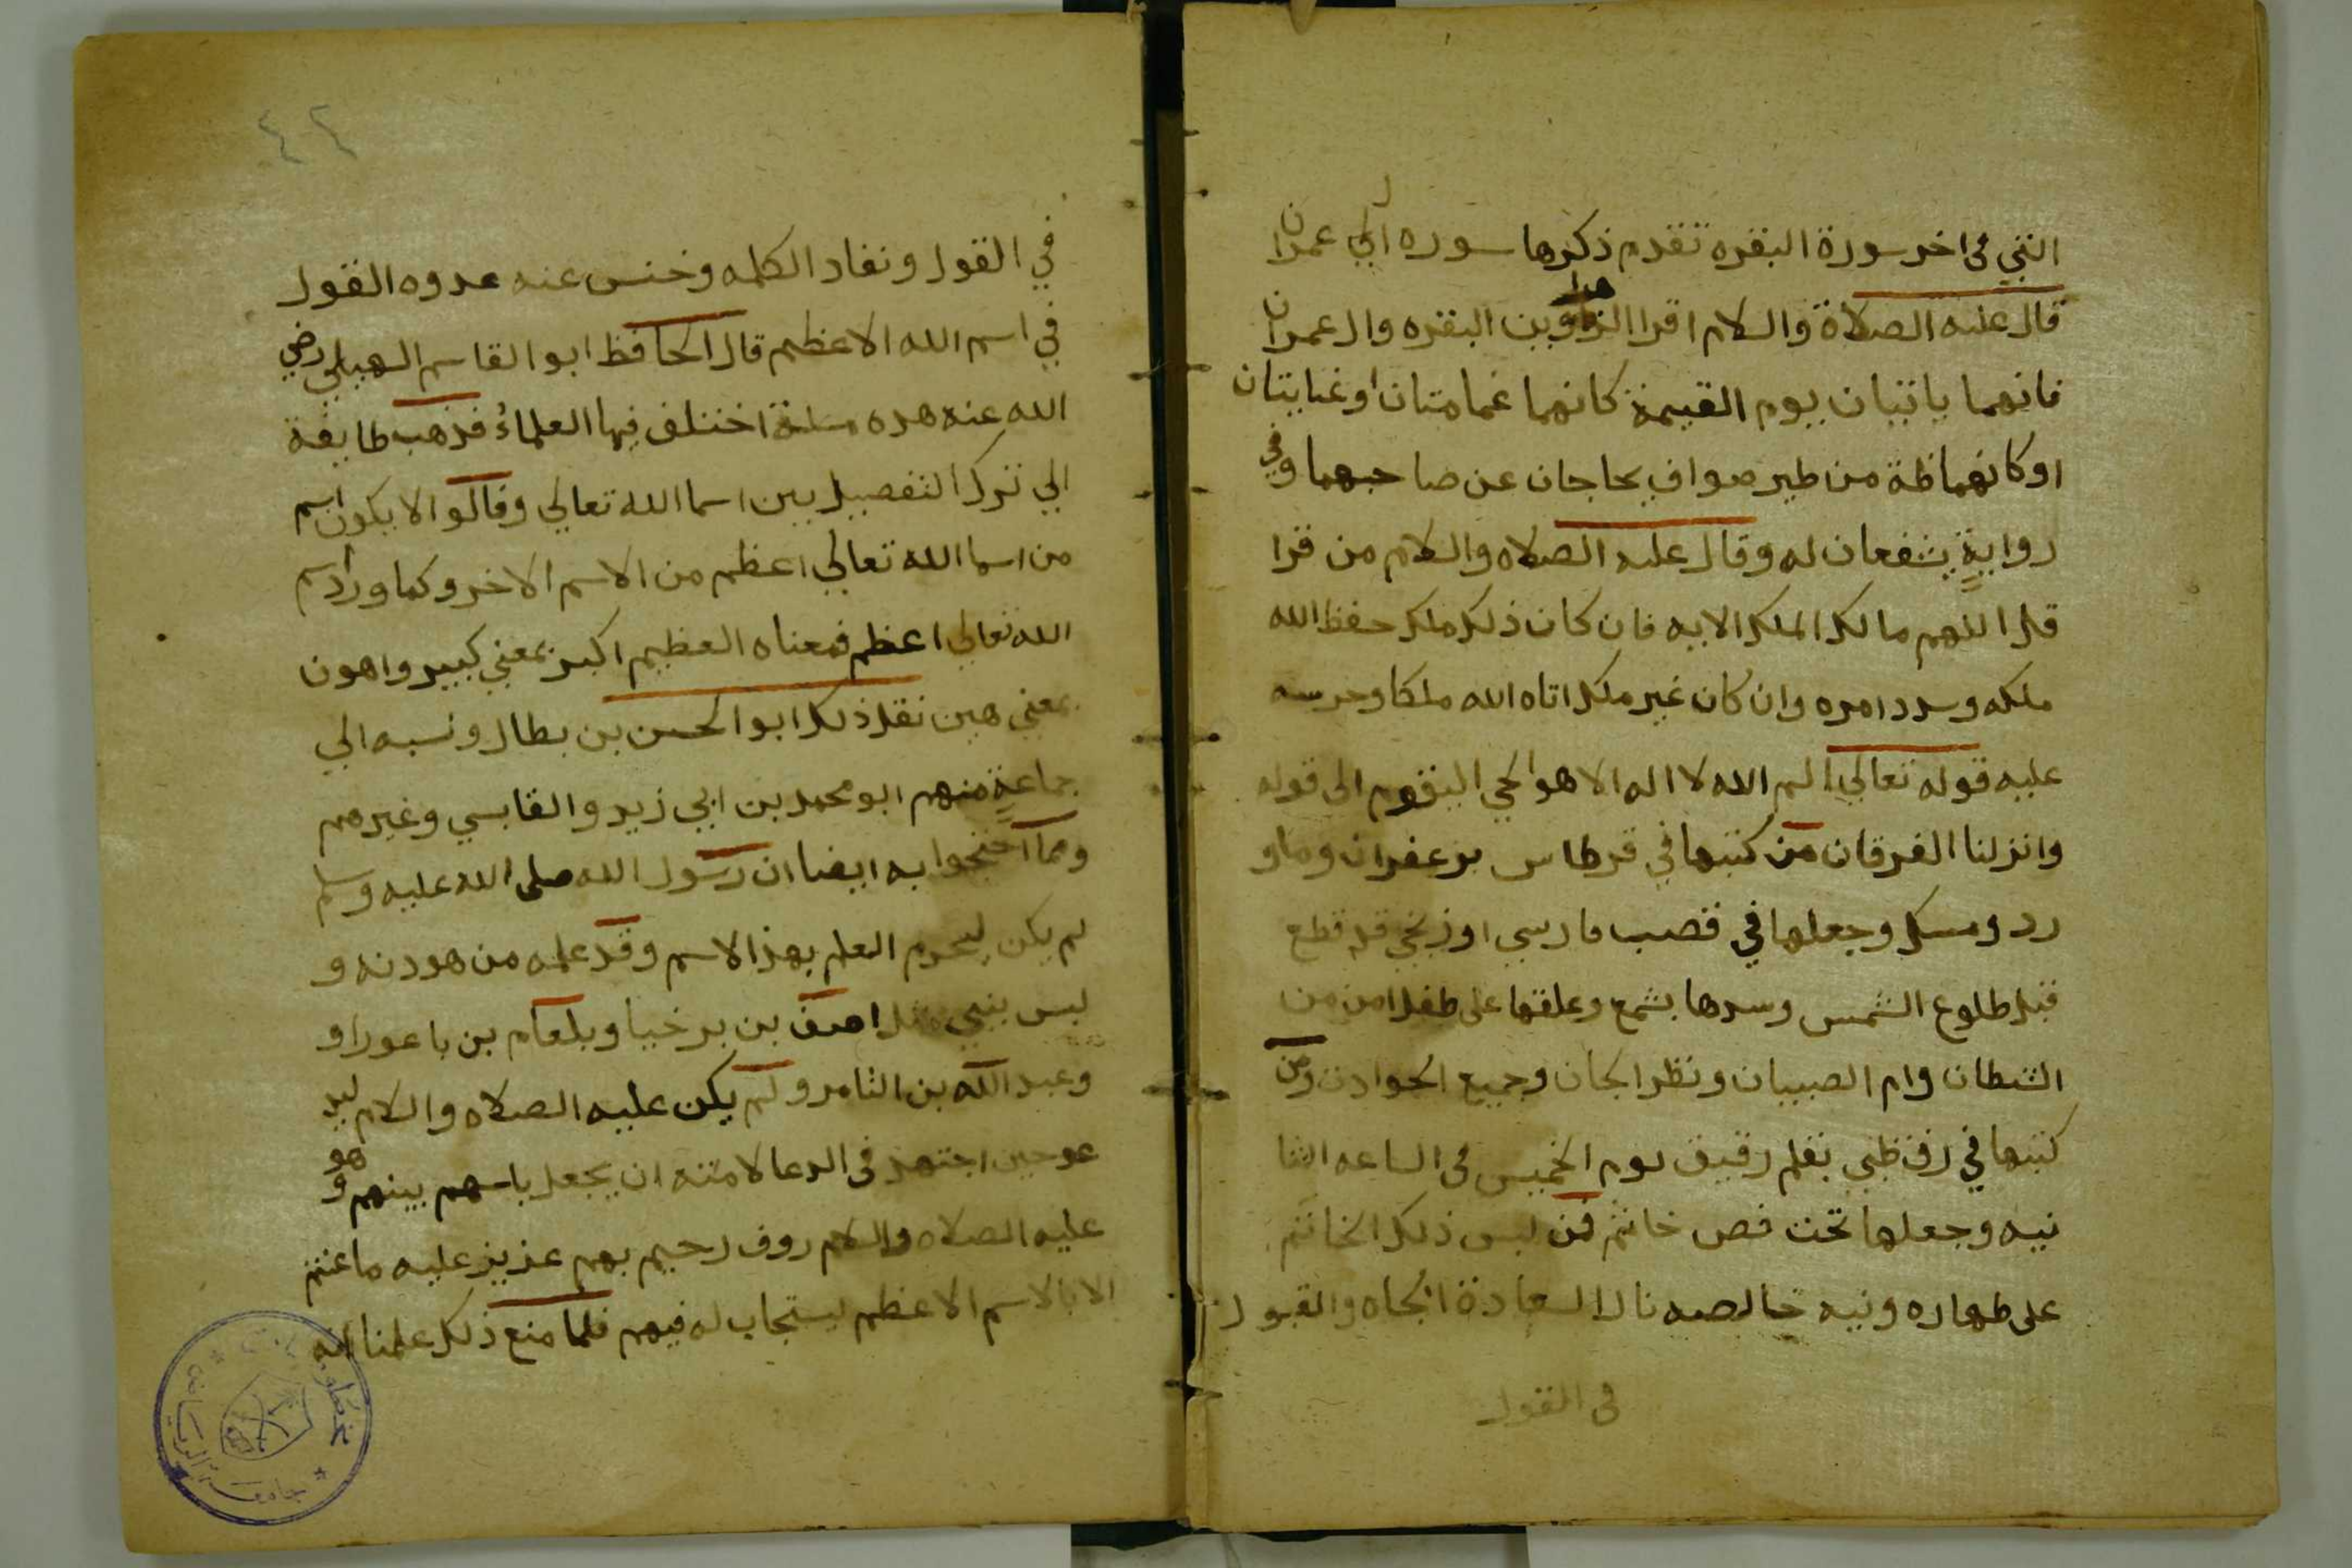 التي في اخر سورة البقره تقدم ذكرها سوره ال عمران
قال عليه الصلاة والسلام اقرا الزهراوين البقره وال عمران
فانهما ياتيان يوم القيمة كانهما غمامتان او غيايتان
او كانهما ظة من طير صواف يحاجان عن صاحبهما وفي
رواية يشفعان له وقال عليه الصلاه والسلام من قرا
قل اللهم مالك الملك الايه فان كان ذلك ملك حفظ الله
ملكه وسدد امره وان كان غير ملك اتاه الله ملكا وحرسه
عليه قوله تعالي الم الله لا اله الا هو الحي القيوم الى قوله
وانزلنا الفرقان من كتبها في قرطاس بزعفران وماو
رد ومسك وجعلها في قصب فارسي او زنجي قد قطع
قبل طلوع الشمس وسدها بشمع وعلقها على طفل امن من
الشطان وام الصبيان ونظر الجان وجميع الحوادث ومن
كتبها في رق ظبي بقلم رقيق يوم الخميس في الساعه الثا
نيه وجعلها تحت فص خاتم فمن لبس ذلك الخاتم
على طهاره ونيه خالصه نال السعادة الجاه والقبول
في القول
٤٢
في القول ونفاد الكلمه وخنس عنه عدوه القول
في اسم الله الاعظم قال الحافظ ابو القاسم السهيلي رضي
الله عنه هده مسلة اختلف فيها العلماء فذهب طايفة
الي ترك التفصيل بين اسما الله تعالي وقالوا لا يكون اسم
من اسما الله تعالي اعظم من الاسم الاخر وكما ورد اسم
الله تعالي اعظم فمعناه العظيم اكبر بمعني كبير واهون
بمعني هين نقل ذلك ابو الحسن بن بطال ونسبه الي
جماعة منهم ابو محمد بن ابي زيد والقابسي وغيرهم
ومما احتجوا به ايضا ان رسول الله صلى الله عليه وسلم
لم يكن ليحرم العلم بهذا الاسم وقد علمه من هو دنه و
ليس بنبي مثل اصف بن برخيا وبلعام بن باعورا و
وعبد الله بن الثامر ولم يكن عليه الصلاه والسلام ليد
عو حين اجتهد في الدعا لامته ان يجعل باسهم بينهم وهو
عليه الصلاه والسلام روف رحيم بهم عزيز عليه ما عنتم
الا بالاسم الاعظم ليستجاب له فيهم فلما منع ذلك علمنا انه
جامعة الرياض